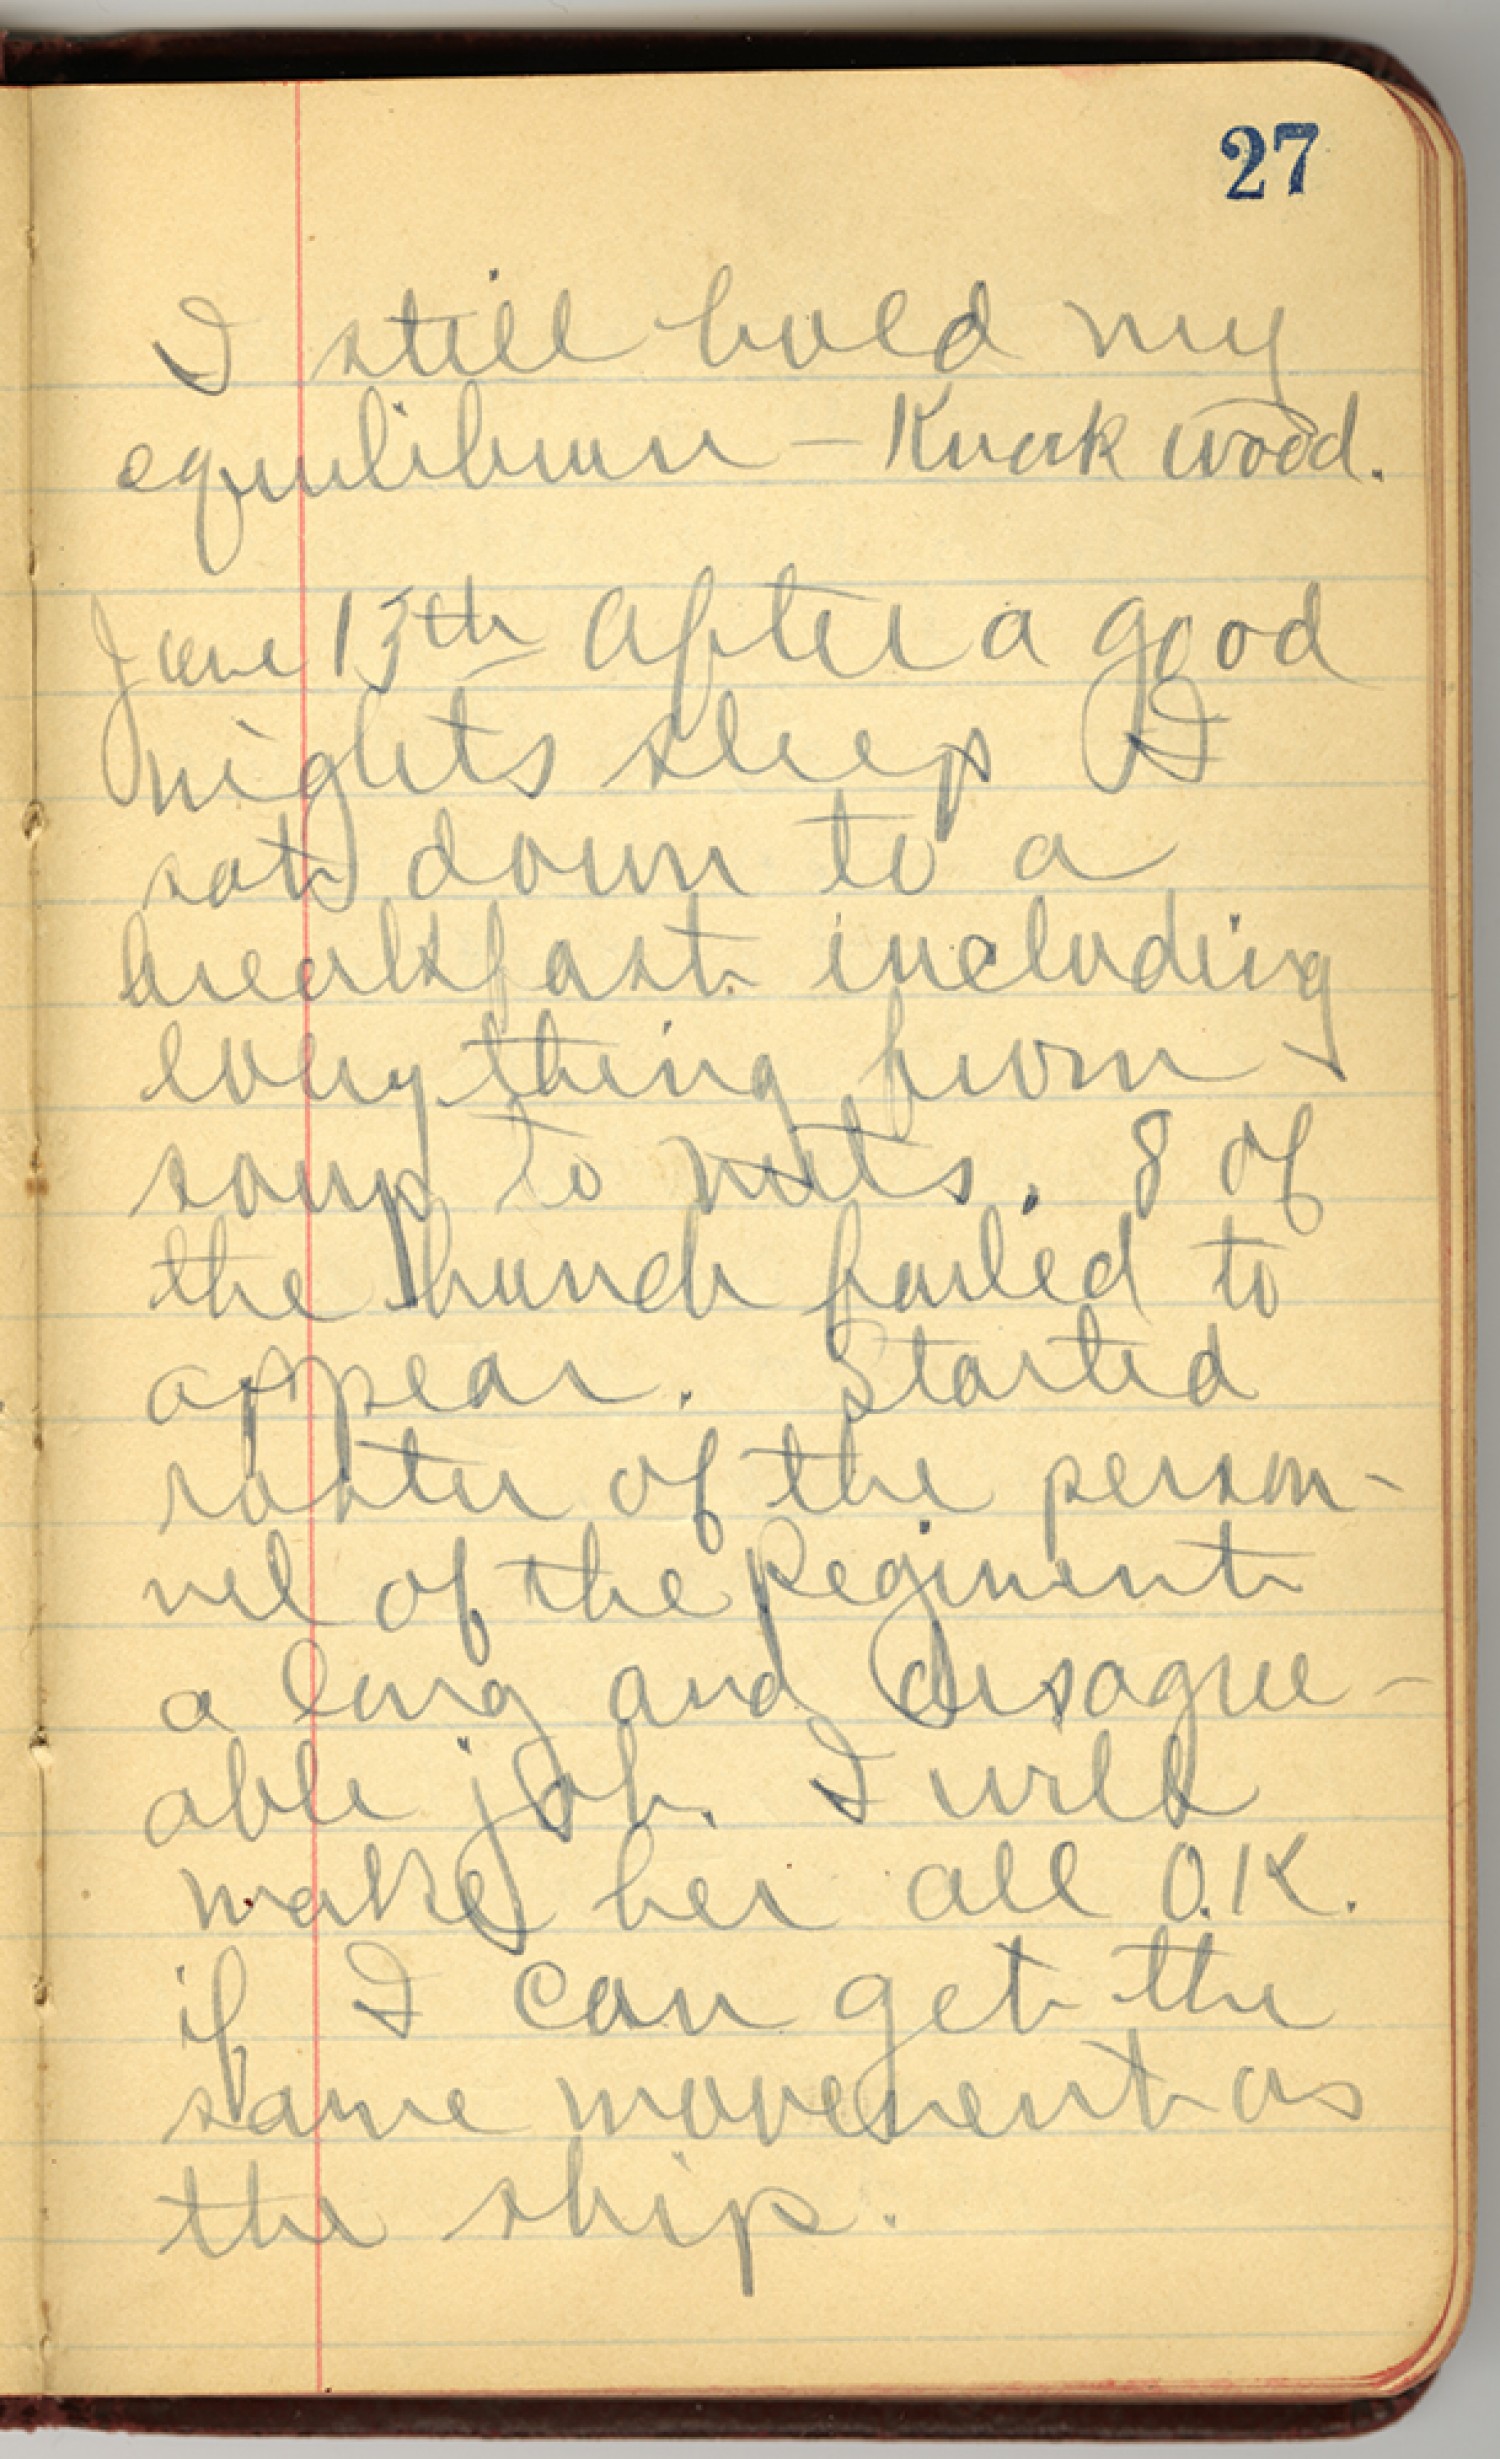 27
I still hold my
equilibrium – Knock wood.
June 13th After a good
nights sleep I
sat down to a
breakfast including
everything from
soup to nuts. 8 of
the bunch failed to
appear. Started
roster of the person-
nel of the Regiment
a long and disagree-
able job. I will
make her all O.K.
if I can get the
same movement as
the ship.